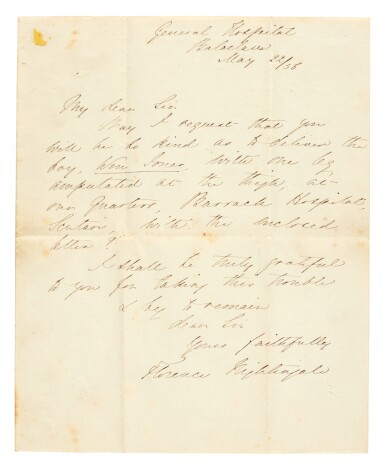 General Hospital
Balaclava
May 22/56
My dear Sir
May I request that you
will be so kind as to deliver the
boy, Wm Jones, with one leg
amputated at the thigh, at
our quarters, Barrack Hospital,
Scutari, with the enclosed
letter?
I shall be truly grateful
to you for taking this trouble
& beg to remain
dear Sir
Yours faithfully
Florence Nightingale